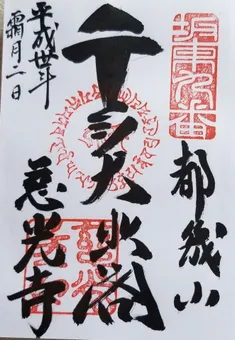 坂東九番
都幾山
千手大悲閣
平成卅年
霜月二日
慈光寺